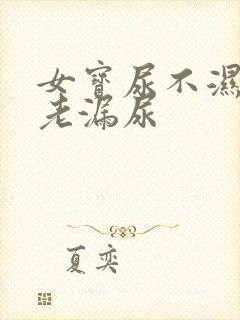 女寶尿不濕
老漏尿
夏奕